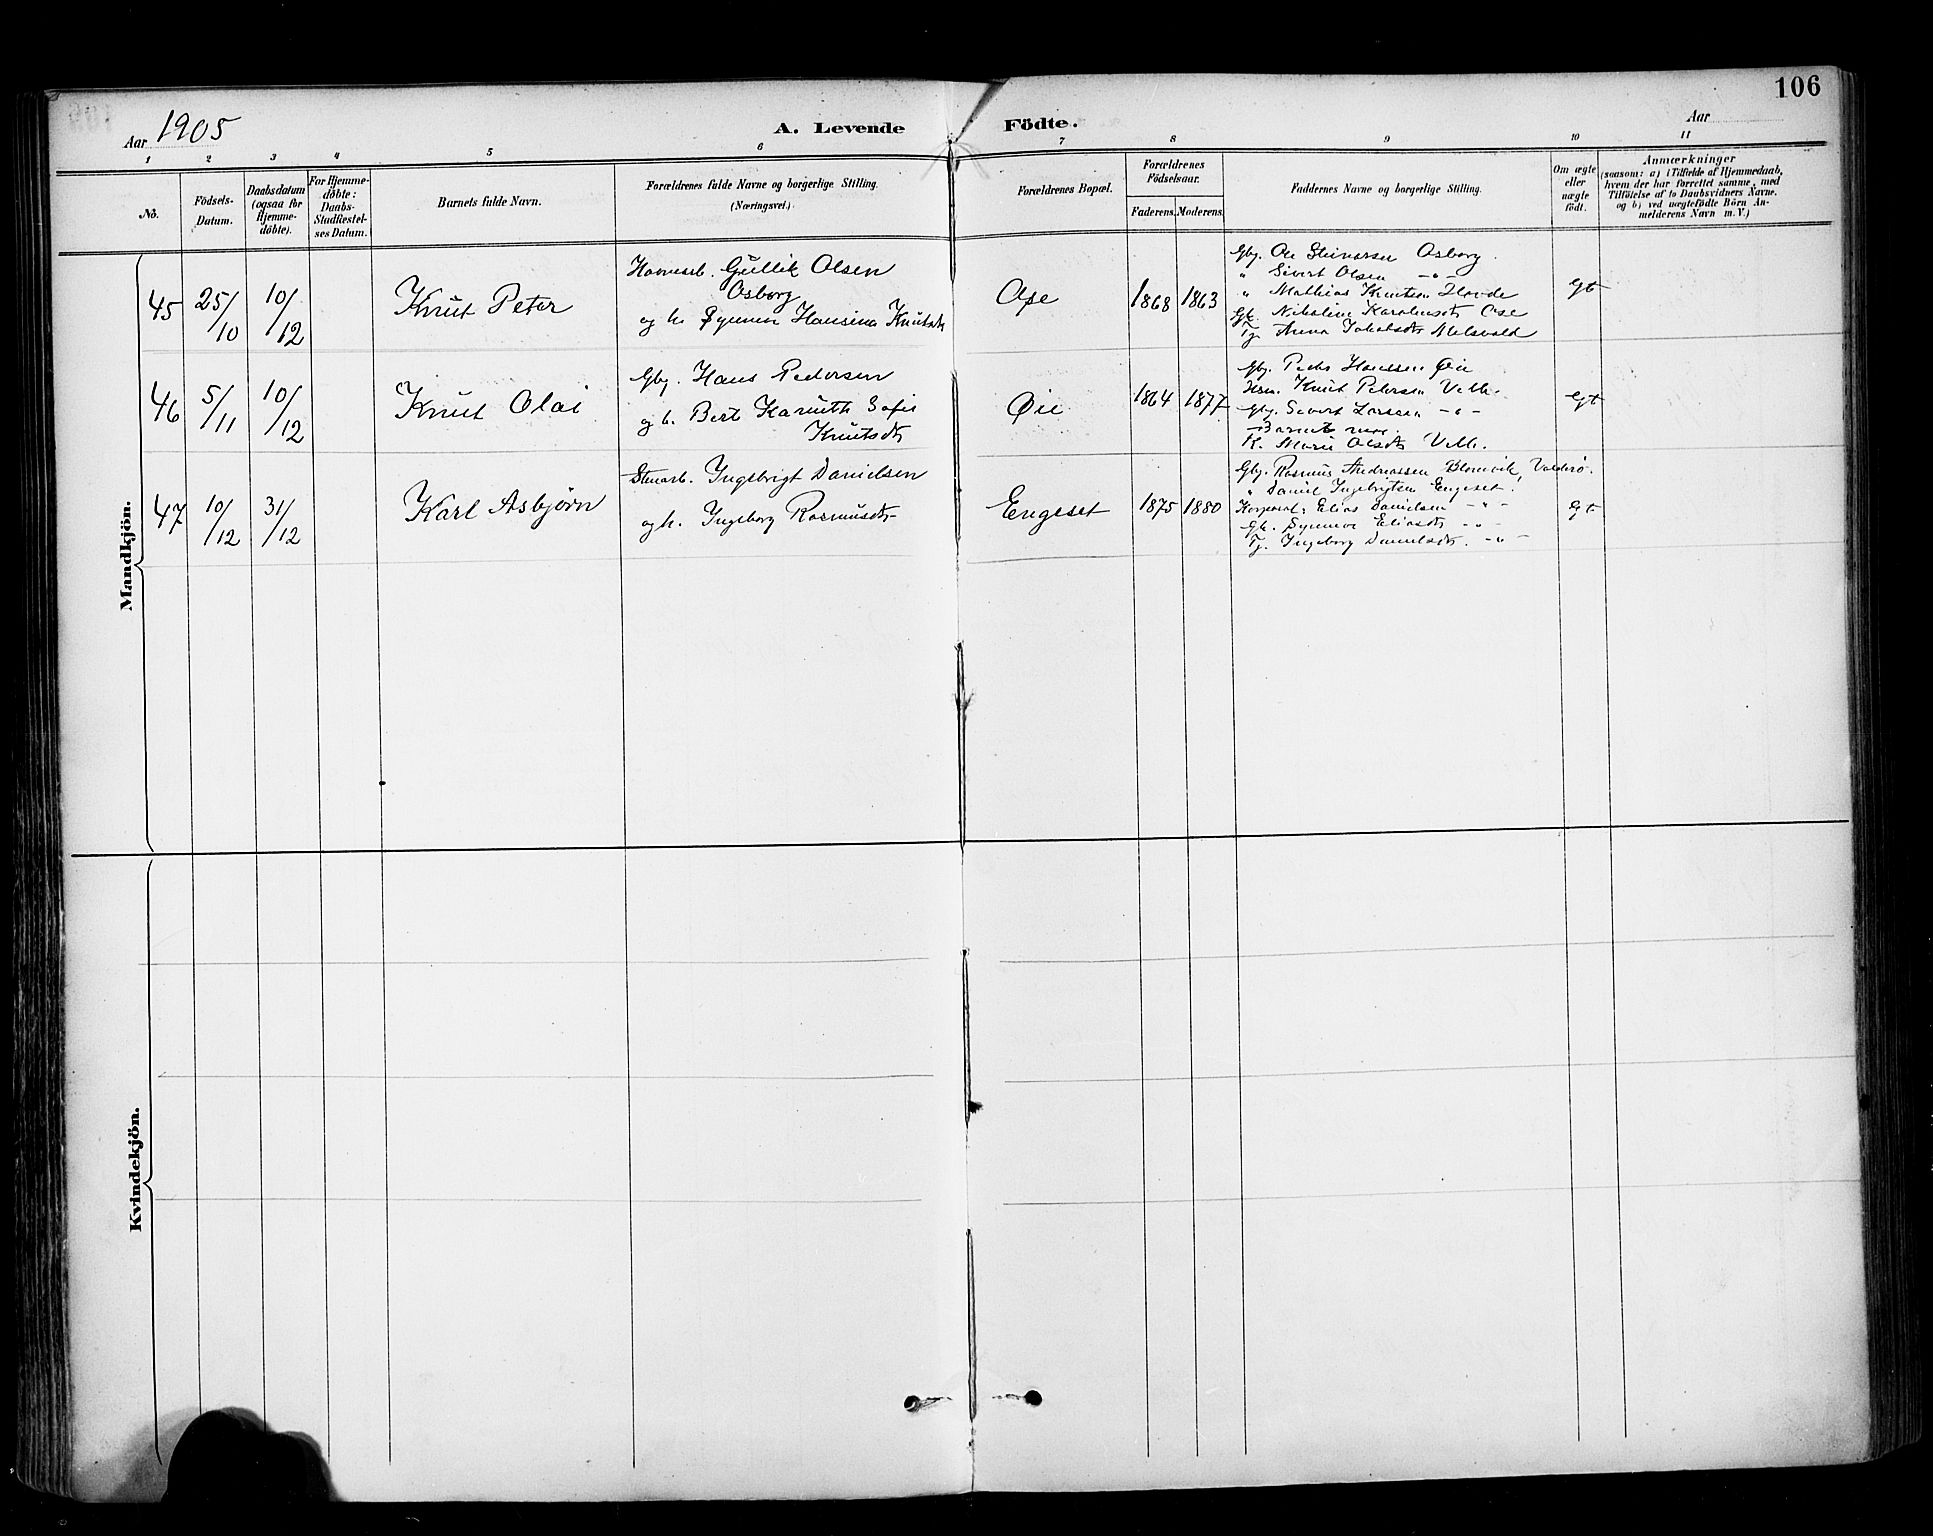 106
Aar 1905
A. Levende Födte.
Aar
1 2 3 4 5 6 7 8 9 10 11
No.
Födsels-
Datum.
Daabsdatum
(ogsaa for
Hjemme-
döbte).
For Hjemme-
döbte:
Daabs-
Stadfæstel-
ses Datum.
Barnets fulde Navn.
Forældrenes fulde Navne og borgerlige Stilling.
(Næringsvei.)
Forældrenes Bopæl.
Forældrenes
Födselsaar.
Faderens. Moderens.
Faddernes Navne og borgerlige Stilling.
Om ægte
eller
uægte
født.
Anmærkninger
(saasom: a) i Tilfælde af Hjemmedaab,
hvem der har forrettet samme, med
Tilföielse af to Daabsvidners Navne.
og b) ved uægtefödte Börn An-
melderens Navn m. V.)
Mandkjön.
45 25/10 10/12 Knut Peter
Gullik Olsen
Osborg
og h. Synneva Hansina Knutsdt
Ose 1868 1863
Gbj. Ole Steinarsen Osborg.
" Sivert Olsen -"-
" Mathias Knutsen Hovde
Gk. Nikoline Karolusdt Ose
Tj. Anna Jakobsdt
Egt
46 5/11 10/12 Knut Olai
Gbj. Hans Pedersen
og h. Bert Karnith Sofie
Knutsdt
Øie 1864 1877
Gbj. Peder Hanssen Øie
Knut Petersen Velle.
Gbj. Sivert Larssen -"-
Barnets mor.
K. Marie Olsdt Velle.
Egt
47 10/12 31/12 Karl Asbjørn
Stenarb. Ingebrigt Danielsen
og h. Ingeborg Rasmusdt-
Engeset 1875 1880
Gbj. Rasmus Andreassen Blomvik, Valderø.
" Daniel Ingebrigtsen Engeset.
Korporal: Elias Danielsen -"-
Gk. Synneve Eliasdt -"-
Tj. Ingeborg Danielsdt. -"-
Egt
Kvindekjön.